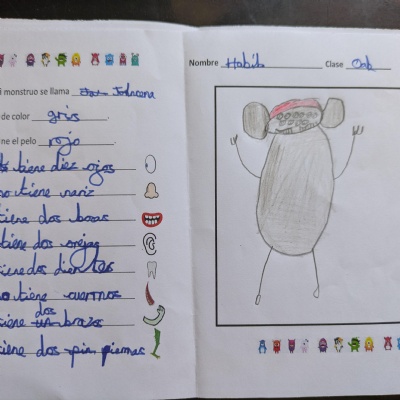 i monstruo se llama Johncena
de color gris.
ne el pelo rojo
tiene diez ojos
no tiene nariz
tiene dos bocas
tiene dos orejas
tiene dos dientes
no tiene cuernos
tiene dos brazos
tiene dos piernas
Nombre Habib Clase Oak